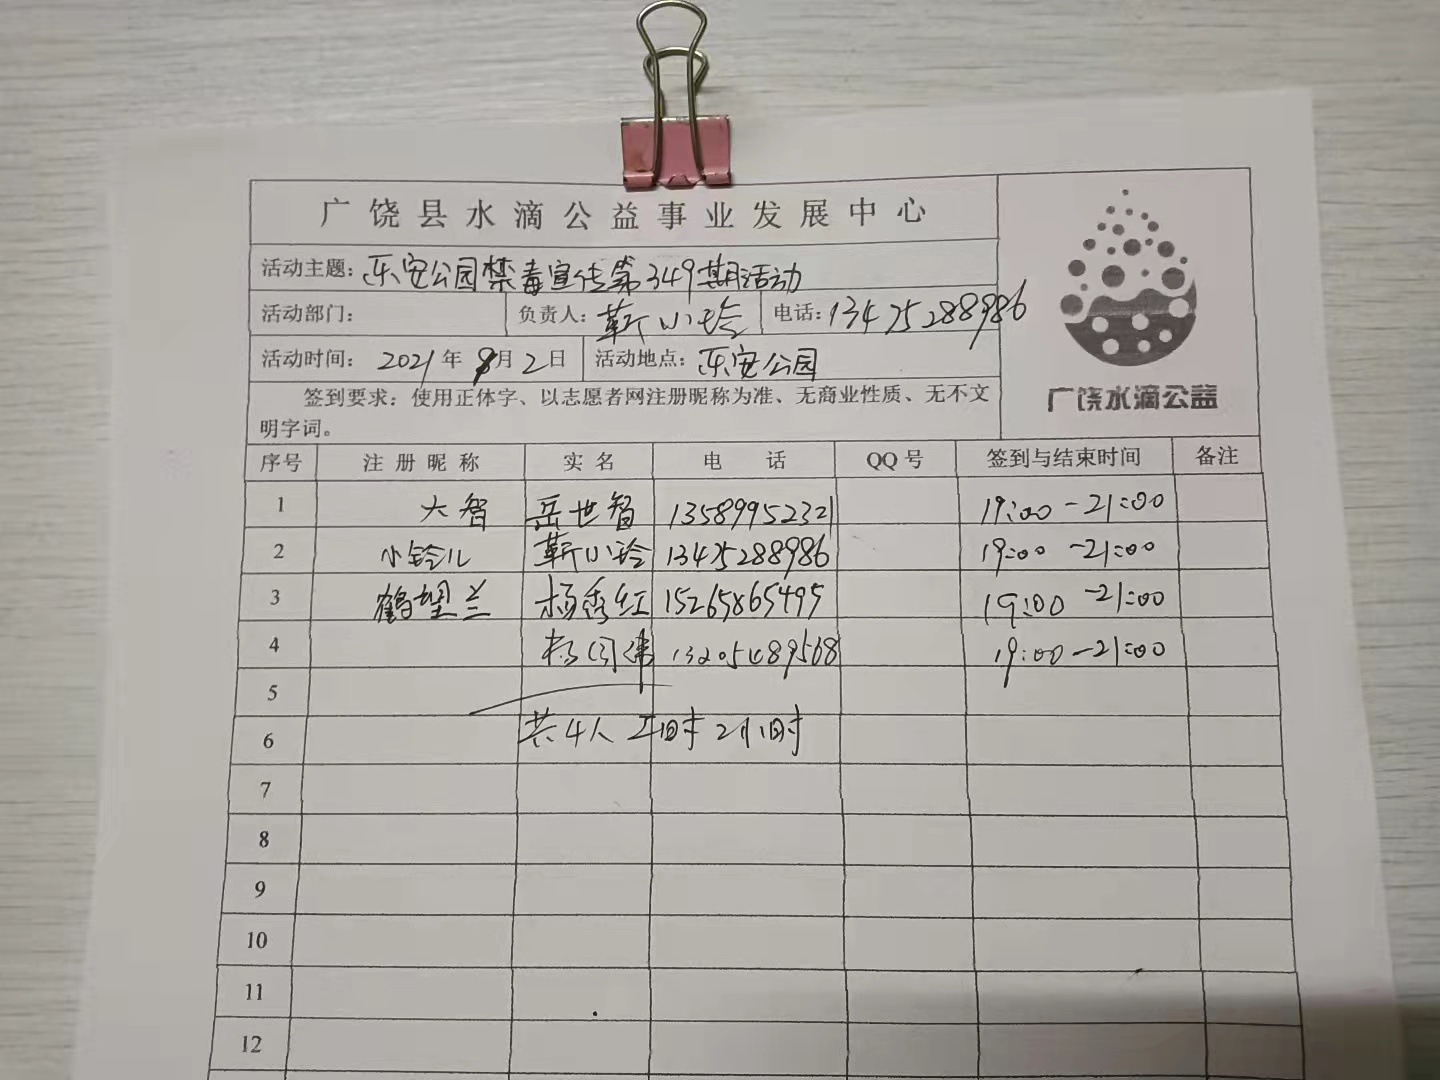 广饶县水滴公益事业发展中心
活动主题：乐安公园禁毒宣传第349期活动
活动部门： 负责人：靳小玲 电话：13475288986
活动时间：2021年8月2日 活动地点：乐安公园
签到要求：使用正体字、以志愿者网注册昵称为准、无商业性质、无不文
明字词。
广饶水滴公益
序号 注册昵称 实名 电话 QQ号 签到与结束时间 备注
1 大智 岳世智 13589952321 19:00-21:00
2 小铃儿 靳小玲 13475288986 19:00-21:00
3 鹤望兰 杨秀红 15265865495 19:00-21:00
4 13205489568 19:00-21:00
5
6 共4人 工时2小时
7
8
9
10
11
12